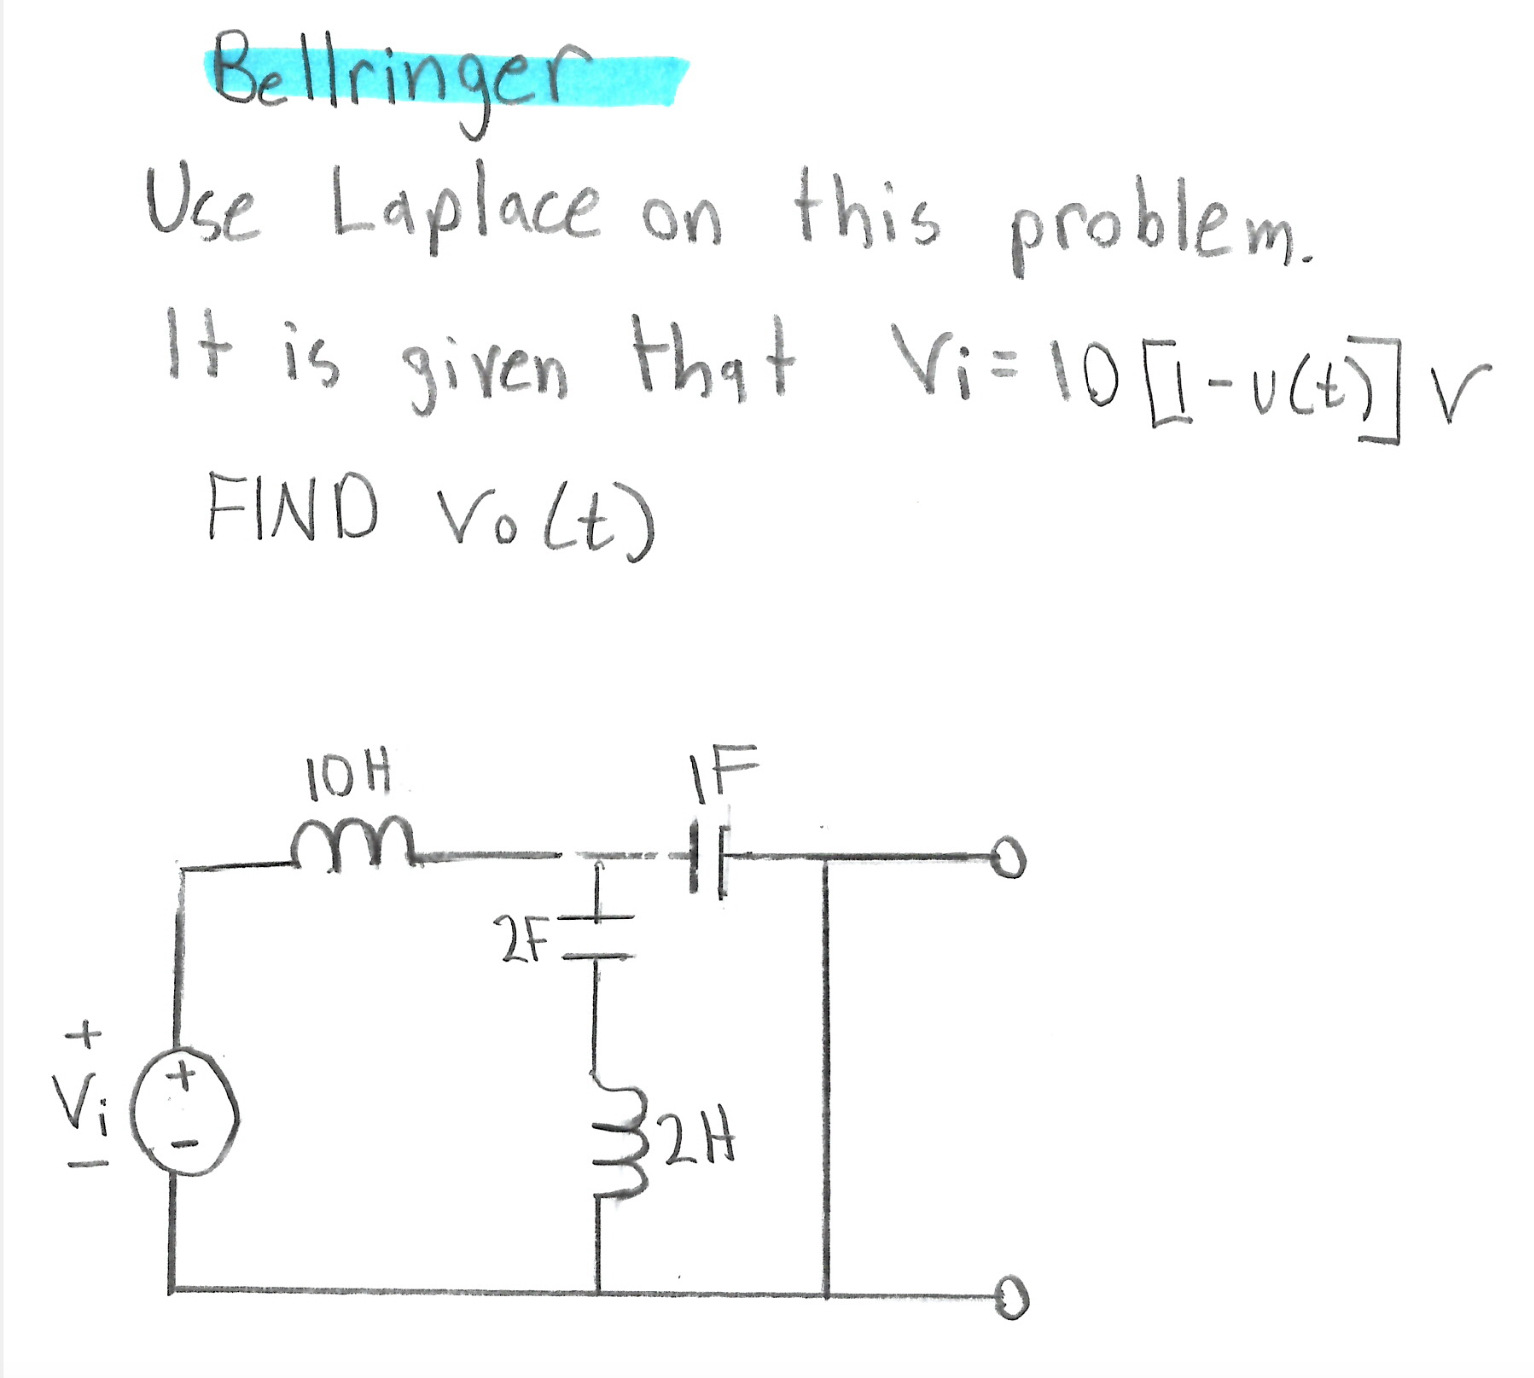 Bellringer
Use Laplace on this problem.
It is given that Vi = 10 [1-u(t)] V
FIND Vo(t)
10H
1F
2F
+
Vi
-
+
-
2H